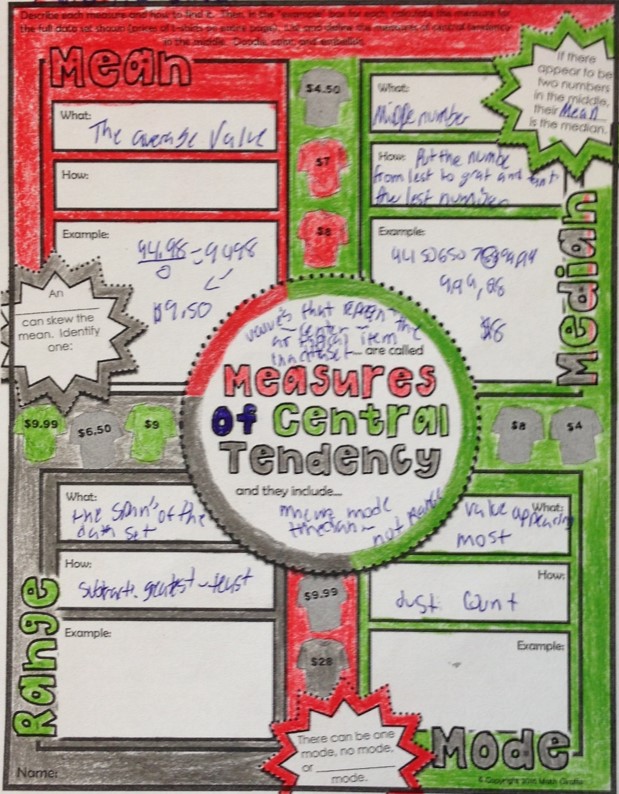 Describe each measure and how to find it. Then, in the "example" box for each, calculate the measure for
the full data set shown (price of t-shirts
and define the measures of central tendency
in the middle. Doodle, color, and embellish.
Mean
What:
The average Value
How:
Example:
94.98 = 9498
$9.50
An
can skew the
mean. Identify
one:
$4.50
$7
$8
If there
appear to be
two numbers
in the middle,
their Mean
is the median.
What:
Middle number
How: Put the
from lest to and
the lest
Example:
$8
Median
values that
center the
or typical item
are called
Measures
Of Central
Tendency
and they include...
mode
not range
$9.99
$6.50
$9
$8
$4
What:
the of the
data set
How:
Subtract greatest - least
Example:
Range
Name:
$9.99
$28
There can be one
mode, no mode,
or
mode.
What:
value appearing
most
How:
dust count
Example:
Mode